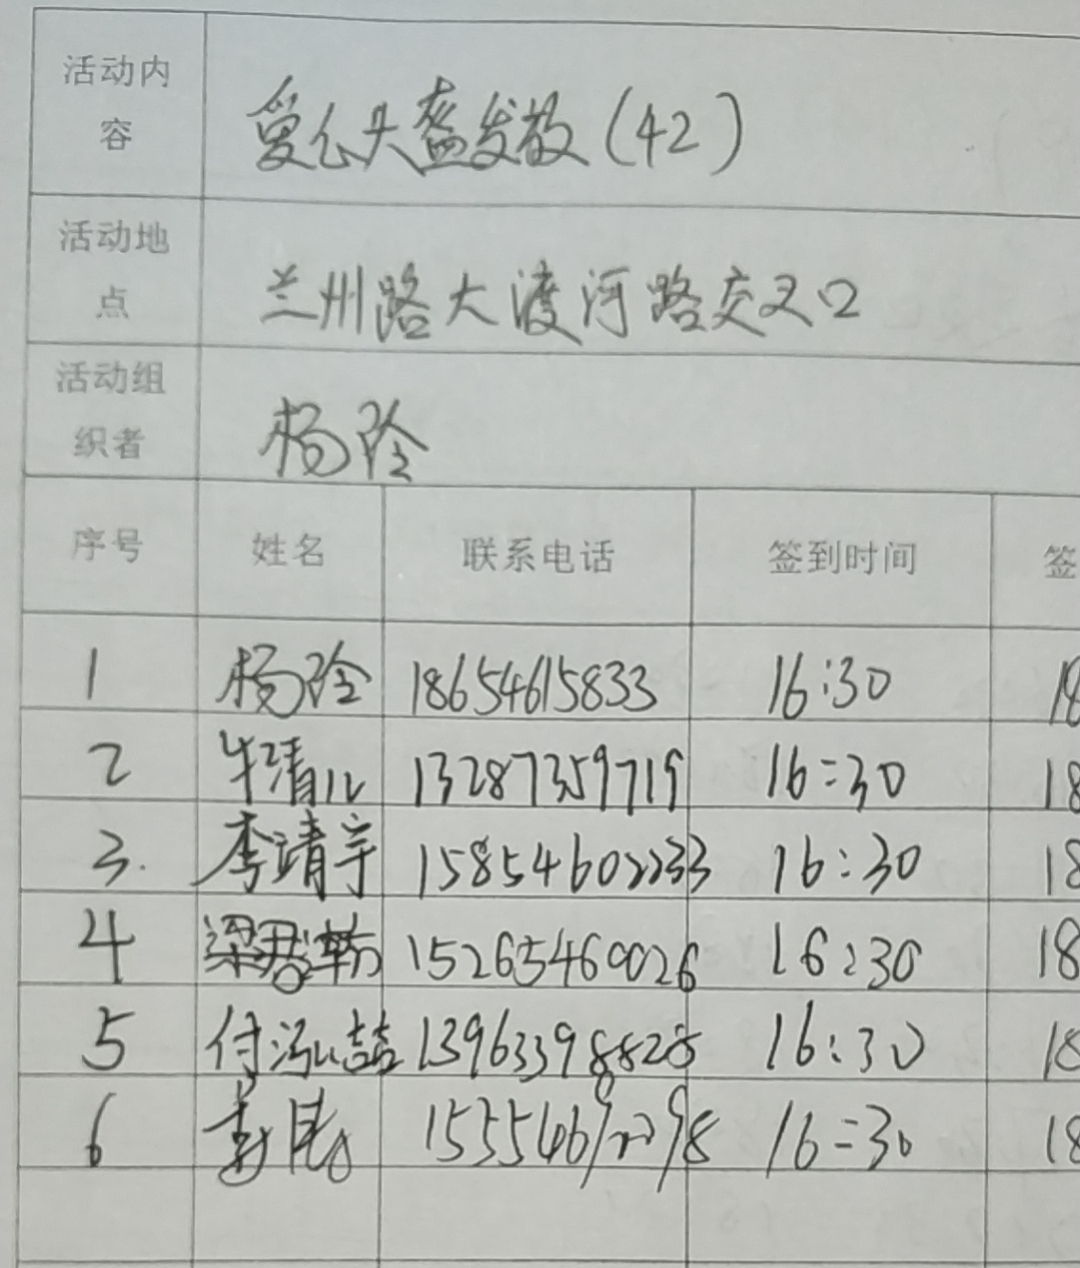 活动内容 爱心头盔发散(42)
活动地点 兰州路大渡河路交叉口
活动组织者 杨玲
序号 姓名 联系电话 签到时间 签
1 杨玲 18654615833 16:30 18
2 牛清儿 13287359719 16:30 18
3. 李靖宇 15854602233 16:30 18
4 梁君 15265460026 16:30 18
5 付泓喆 13963398828 16:30 18
6 16:30 18